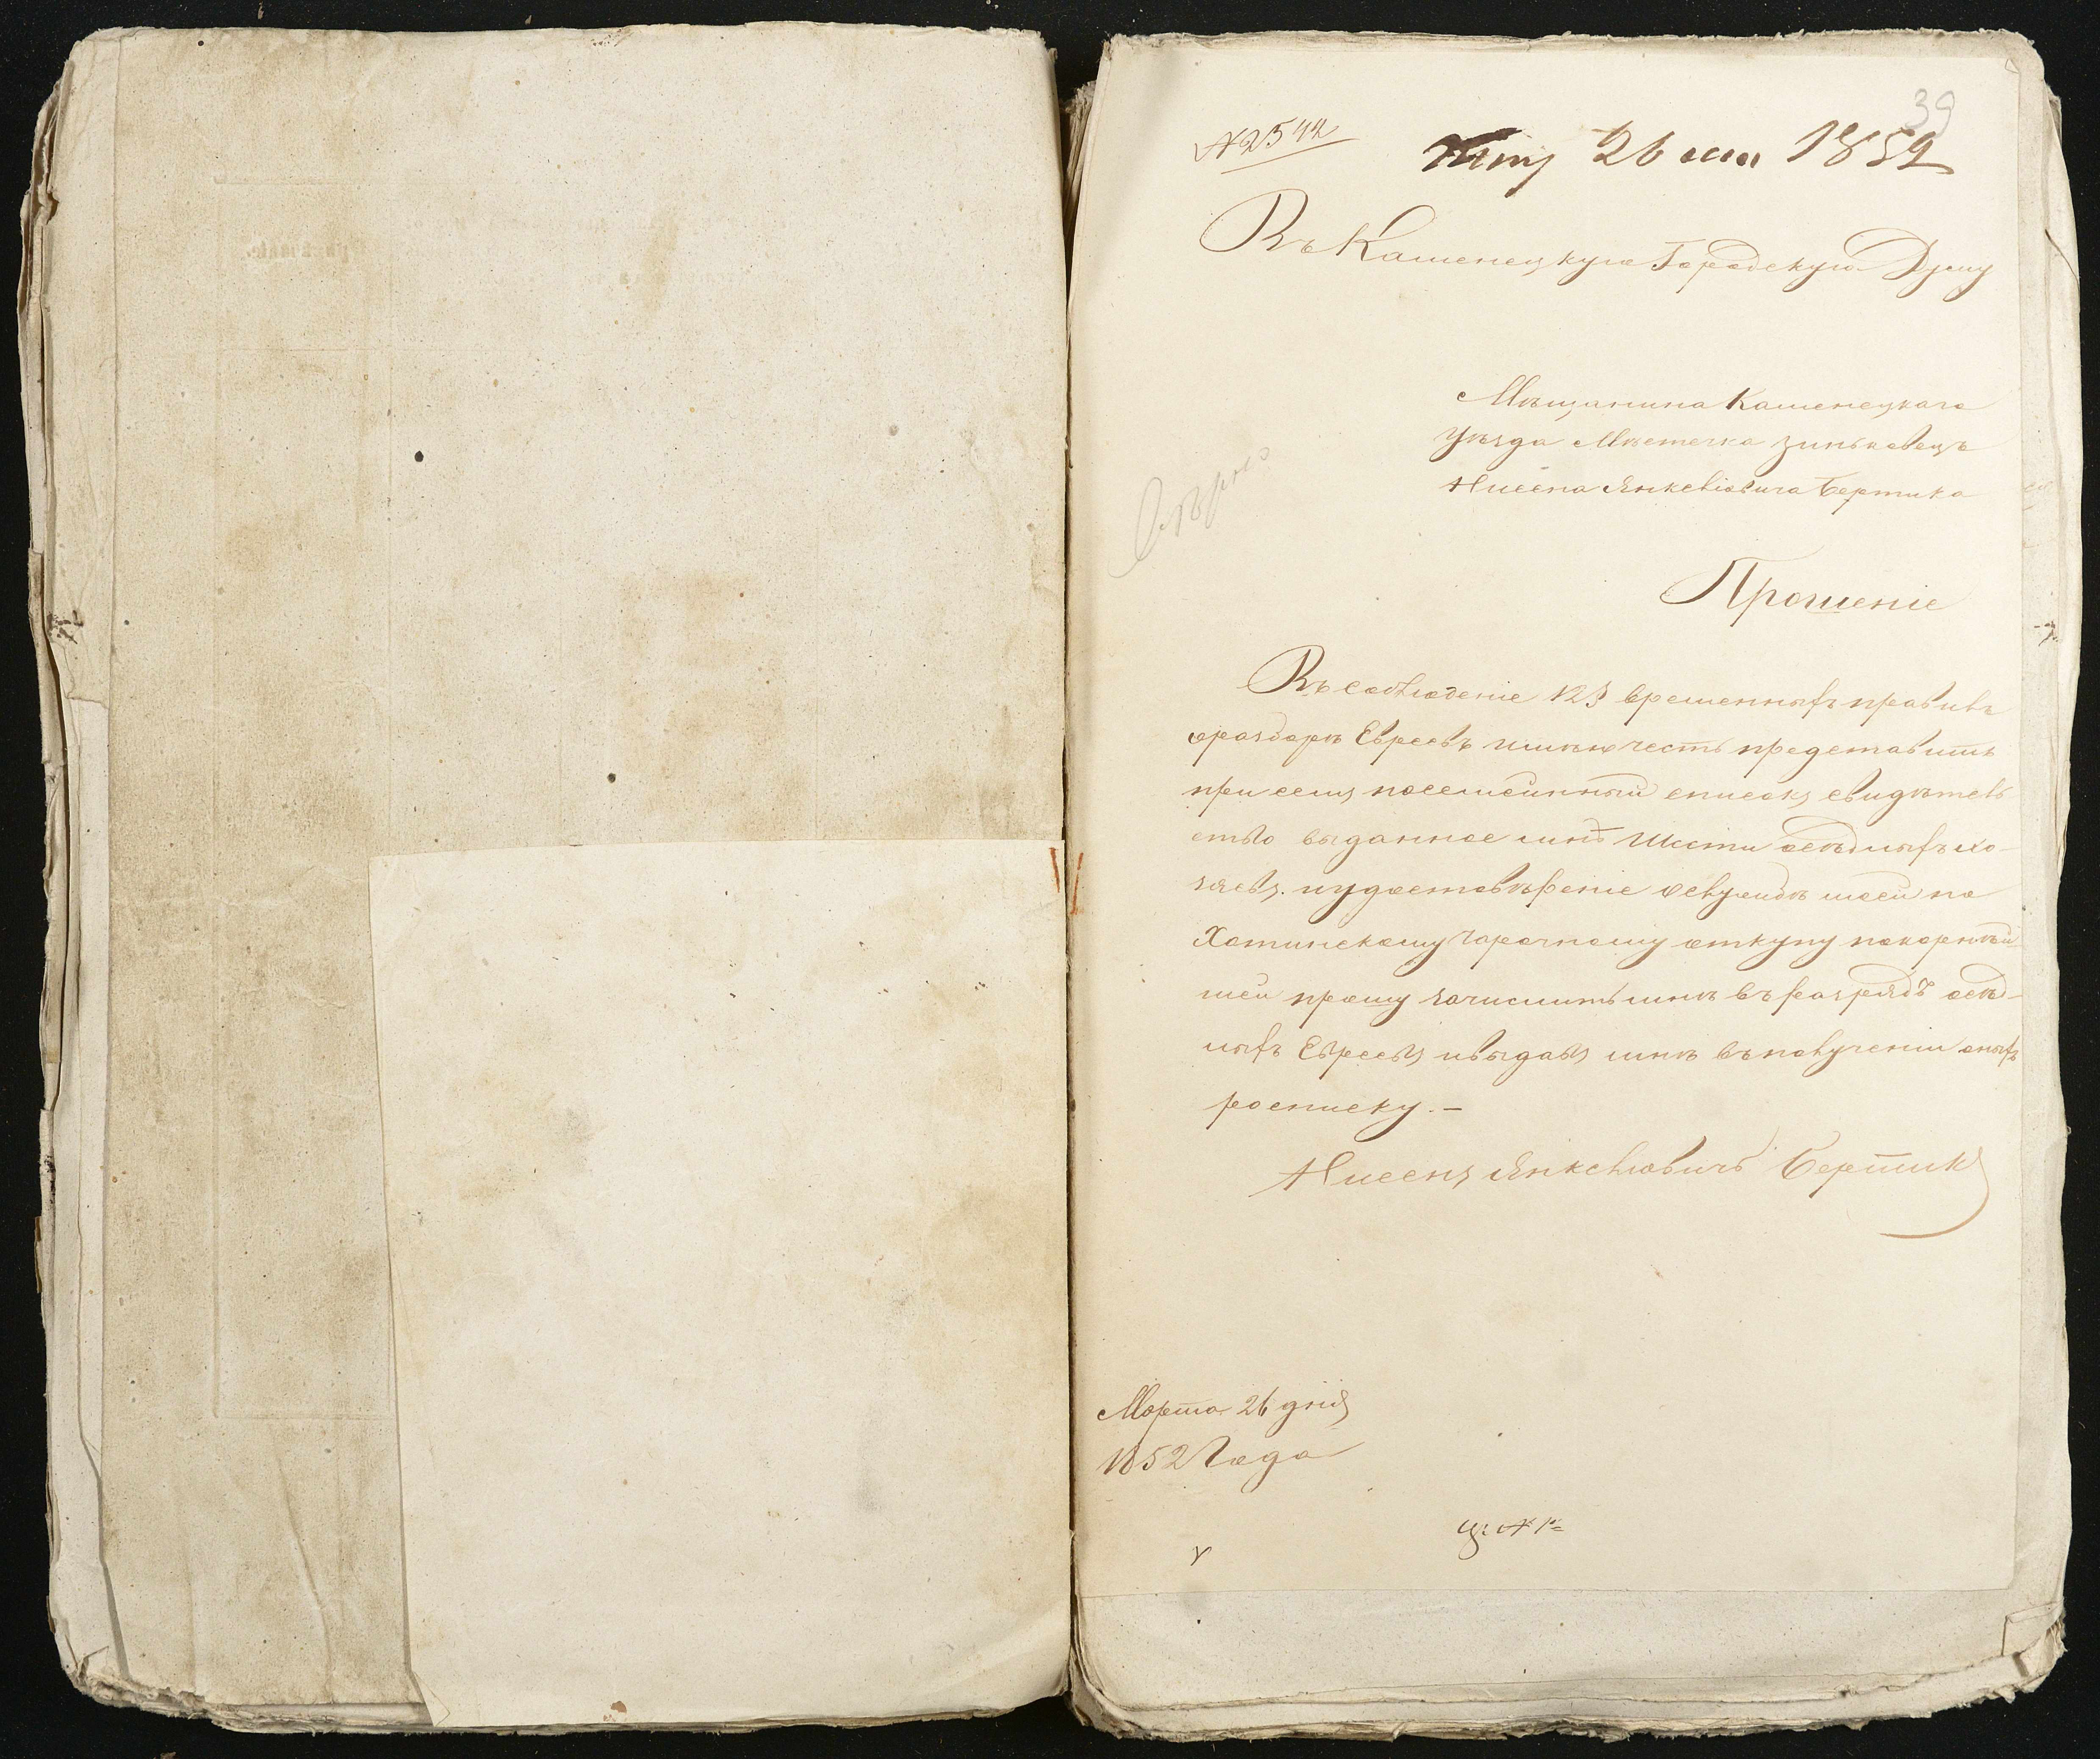 39
№ 2544
26 мар 1852
Въ Каменецкую Городскую Думу
Мѣщанина Каменецкаго
Уѣзда Мѣстечка Зиньковецъ
Нисена Янкеліовича Бертика
Прошеніе
Въ соблюденіе 12 § временныхъ правилъ
о разборѣ Евреевъ имѣю честь представить
при семъ посемейный списокъ свидѣтель
ство выданное мнѣ Шести осѣдлыхъ хо-
зяевъ. и удостовѣреніе о службѣ моей по
Хотинскому чарочному откупу покорнѣй
шеи прошу зачислить мнѣ въ разрядъ осѣд-
лыхъ Евреевъ и выдавъ мнѣ въ полученіи оныхъ
росписку. –
Нисенъ Янкеліовичъ Бертикъ
Марта 26 дня
1852 Года